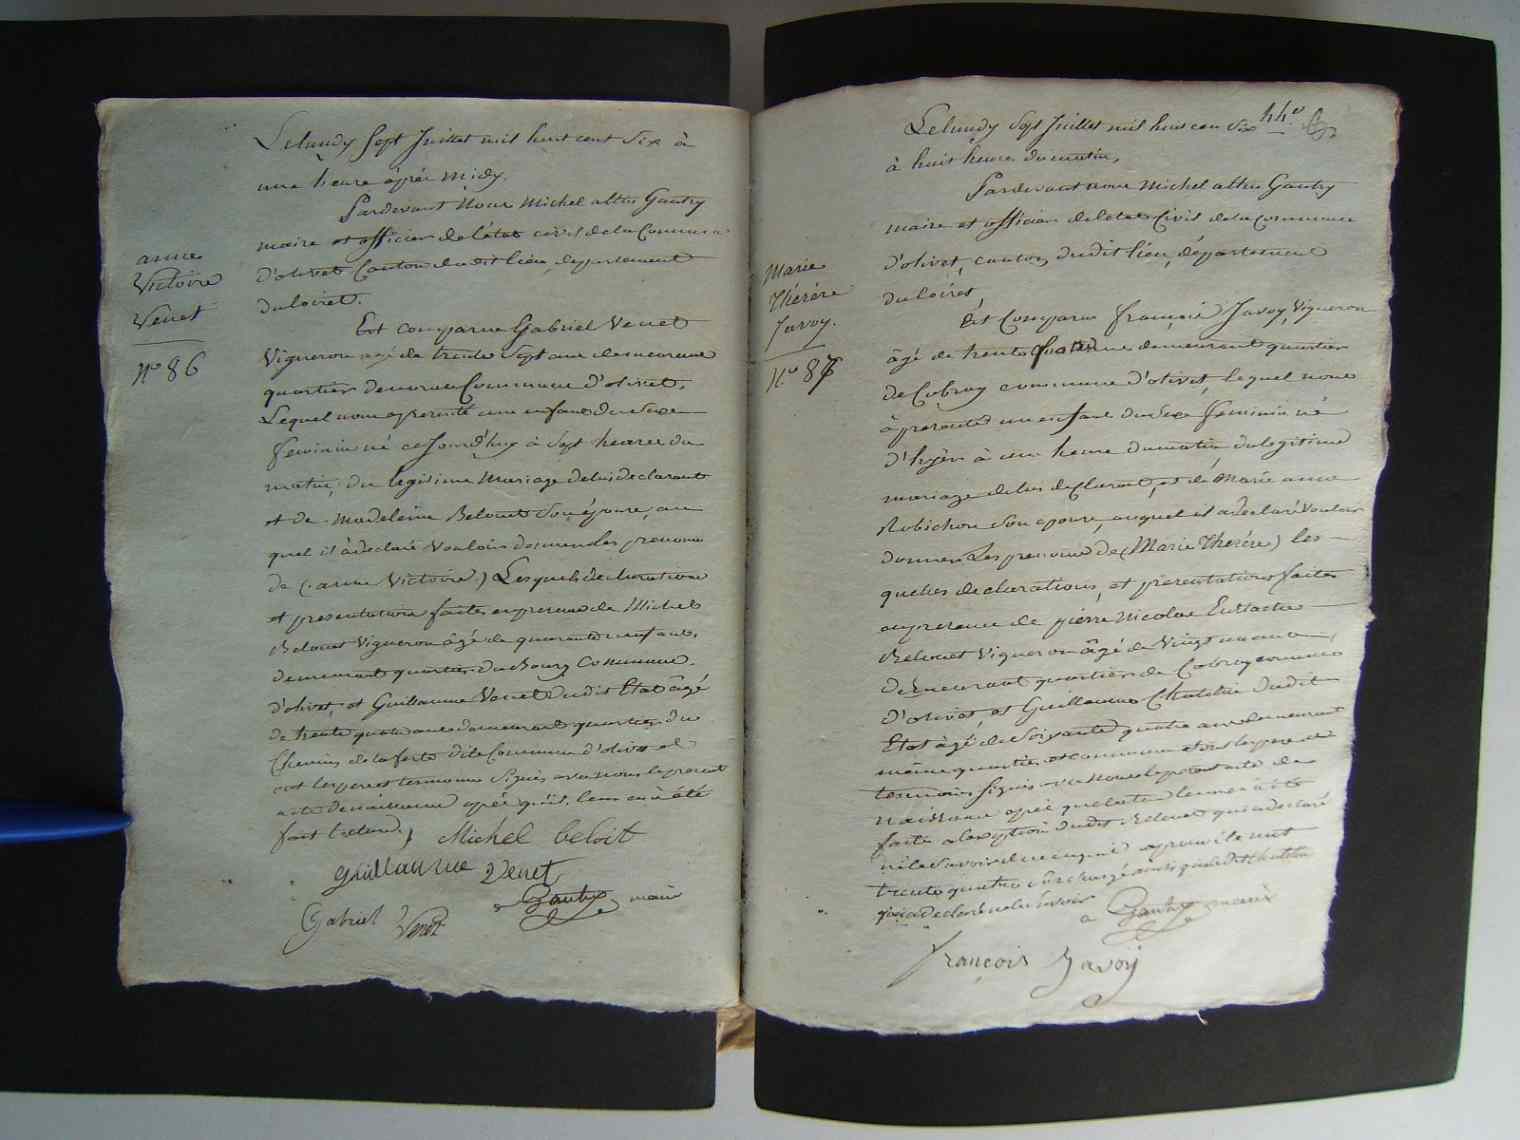 Le lundy Sept Juillet mil huit cent Six à
une heure après midy.
Pardevant Nous Michel altin Gautry
maire et officier de l'état civil de la Commune
d'olivet Canton dudit lieu, departement
du loiret.
anne
Victoire
Venet
N° 86
Est comparu Gabriel Venet
Vigneron agé de trente Sept ans demeurant
quartier de Commune d'olivet,
Lequel nous a presenté un enfant du Sexe
feminin né cejourd'huy à Sept heures du
matin, du legitime Mariage de lui declarant
et de Madeleine Belouet Son épouse, au
quel il à declaré Vouloir donner les prenoms
de (anne Victoire) Lesquels declaration
et presentation faites en presence de Michel
Belouet Vigneron âgé de quarante neuf ans,
demeurant quartier du Bourg Commune
d'olivet, et Guillaume Venet dudit Etat âgé
de trente quatre ans demeurant quartier du
Chemin de la ferté dite Commune d'olivet et
ont les pere et temoins Signés avec nous le present
acte de naissance après qu'il leur en à été
fait lecture,
Michel beloit
guillaume Venet
Gautry maire
Gabriel Venet
44e
Le lundy Sept Juillet mil huit cen Six
à huit heures du matin,
Pardevant nous Michel altin Gautry
maire et officier de l'état Civil de la Commune
d'olivet, canton dudit lieu, département
du loiret,
Marie
Thérére
Javoy.
N° 87
Est Comparu françois Javoy, Vigneron
âgé de trente quatre ans demeurant quartier
de Cobray commune d'olivet, lequel nous
à presenté un enfant du Sexe feminin né
d'hyèr à une heure du matin du legitime
mariage de lui declarant, et de Marie anne
Robichon Son epouse, auquel il a declaré Vouloir
donner Les prenoms de (Marie Therére) les
quelles declarations, et presentations faites
en presence de pierre Nicolas Eustache
Belouet Vigneron âgé de Vingt un ans
demeurant quartier de Cobray commune
d'olivet, et Guillaume Chatelin dudit
Etat âgé de Soixante quatre ans demeurant
même quartier et commune et ont les pere et
temoins Signés avec nous le present acte de
Naissance après que lecture leur en à été
faite a l'exception dudit Belouet qui a declaré
ne le Savoir de ce enquis approuvé le mot
trente quatre Surchargé ainsi que ledit Chatelin
qui a declaré ne le Savoir
Gautry maire
françois Javoy